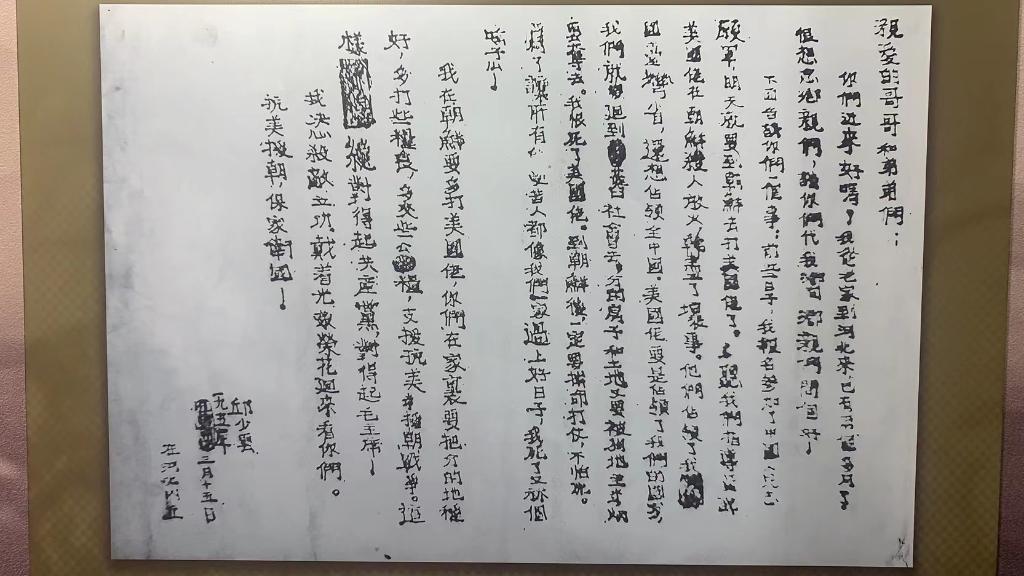 親愛的哥哥和弟弟們：
你們近來好嗎？我從老家到河北來已有
但想念鄉親們，請你們代我
下面告訴你們一件事：前幾日子，我報名參加了中國人民志
願軍，明天就要到朝鮮去打美國佬了。
美國佬在朝鮮殺人放火，了壞事。他們佔領了我
國臺灣省，還想佔領全中國。美國佬要是佔領了我們的國家，
我們就回到舊社會去，分的房子和土地又要被地主
奪去。我恨死了美國佬。到朝鮮後一定要打仗不怕死。
了讓所有受苦人都像我們一家過上好日子，我死了又
！
我在朝鮮要多打美國佬，你們在家裏要把分的地種
好，多打些糧食，多交些公糧，支援抗美援朝戰爭。這
樣才對得起共產黨，對得起毛主席！
我決心殺敵立功，戴着光榮花回來看你們。
抗美援朝，保家衛國！
邱少雲
一九五一年
二月十五日
在河北內丘